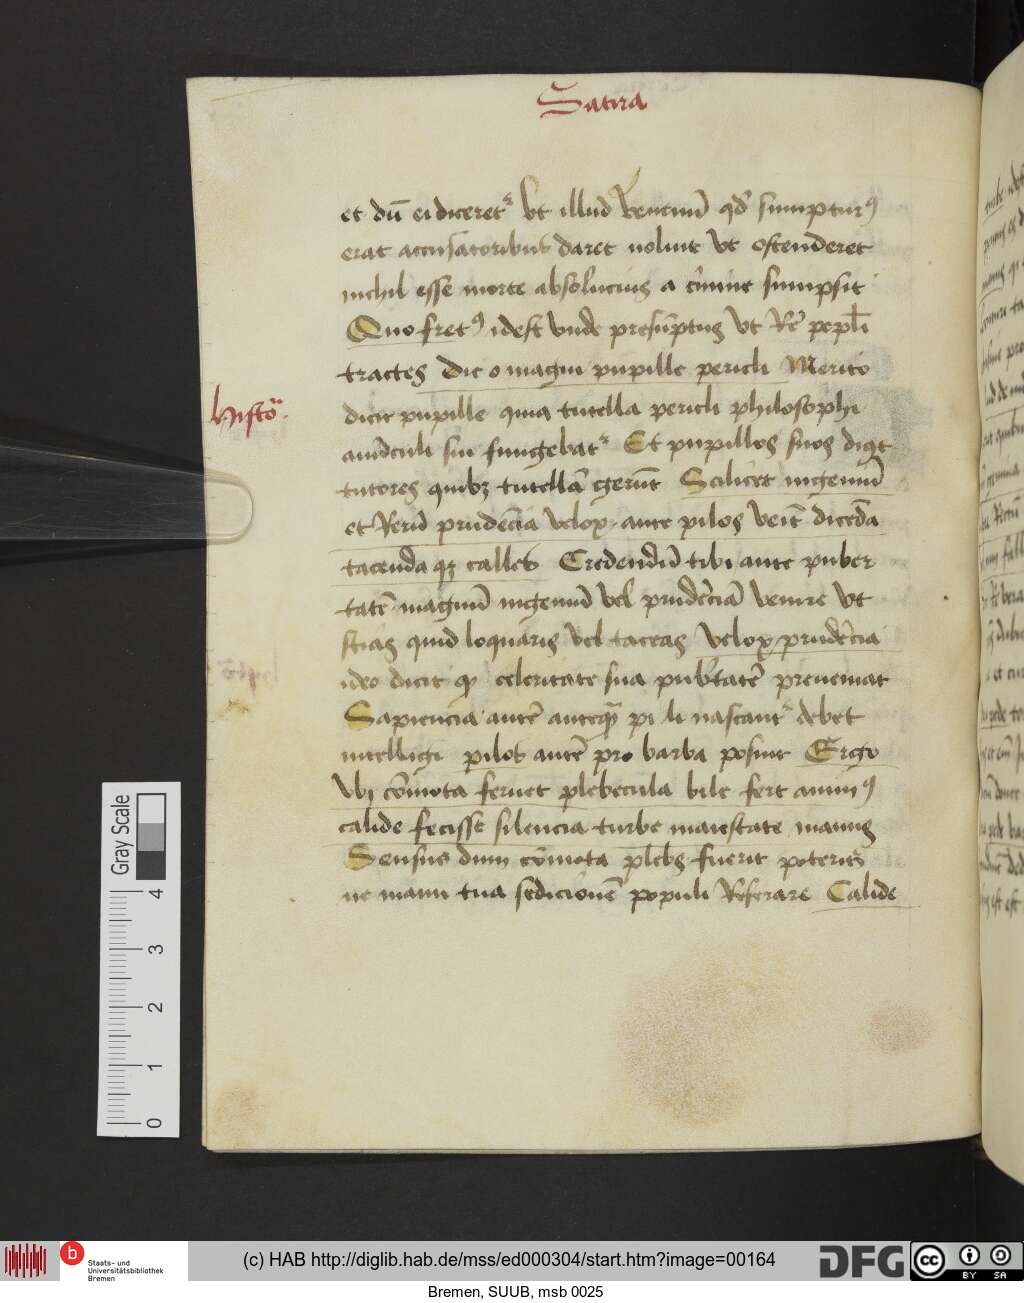 Satira
et dū ei diceretᷣ vt illud venenū qd' sumpturꝰ
erat accusatoribus daret noluit vt ostenderet
nichil esse morte absolucius a crīmīe sumpsit
Quo fretꝰ idest vnde presūptus vt Rē popl̄i
tractes dic o magni pupille pericli Merito
Histō.
dicit pupille quia tutella pericli philosophi
auūculi sui fungebatᷣ Et pupillos suos
tutores quibꝫ tutellā gerūt Scilicet ingeniū
et Rerū prudēcia velox ante pilos veīt diceda
tacenda qꝫ calles Credendū tibi ante puber
tatē magnū ingeniū vel prudēciā venire vt
scias quid loquaris vel taceas velox prudēcia
ideo dicit qꝫ celeritate sua pub'tatē preueniat
Sapiencia autē anteqꝫ pi li nascantᷣ debet
intelligi pilos autē pro barba posuit Ergo
Vbi cōmota feruet plebecula bile fert animꝰ
calide fecisse silencia turbe maiestate manus
Sensus dum cōmota plebs fuerit poteris
ne manu tua sedicionē populi Referare Calide
Gray Scale
4
3
2
1
0
b
Staats- und
Universitätsbibliothek
Bremen
(c) HAB http://diglib.hab.de/mss/ed000304/start.htm?image=00164
DFG
cc
BY SA
Bremen, SUUB, msb 0025